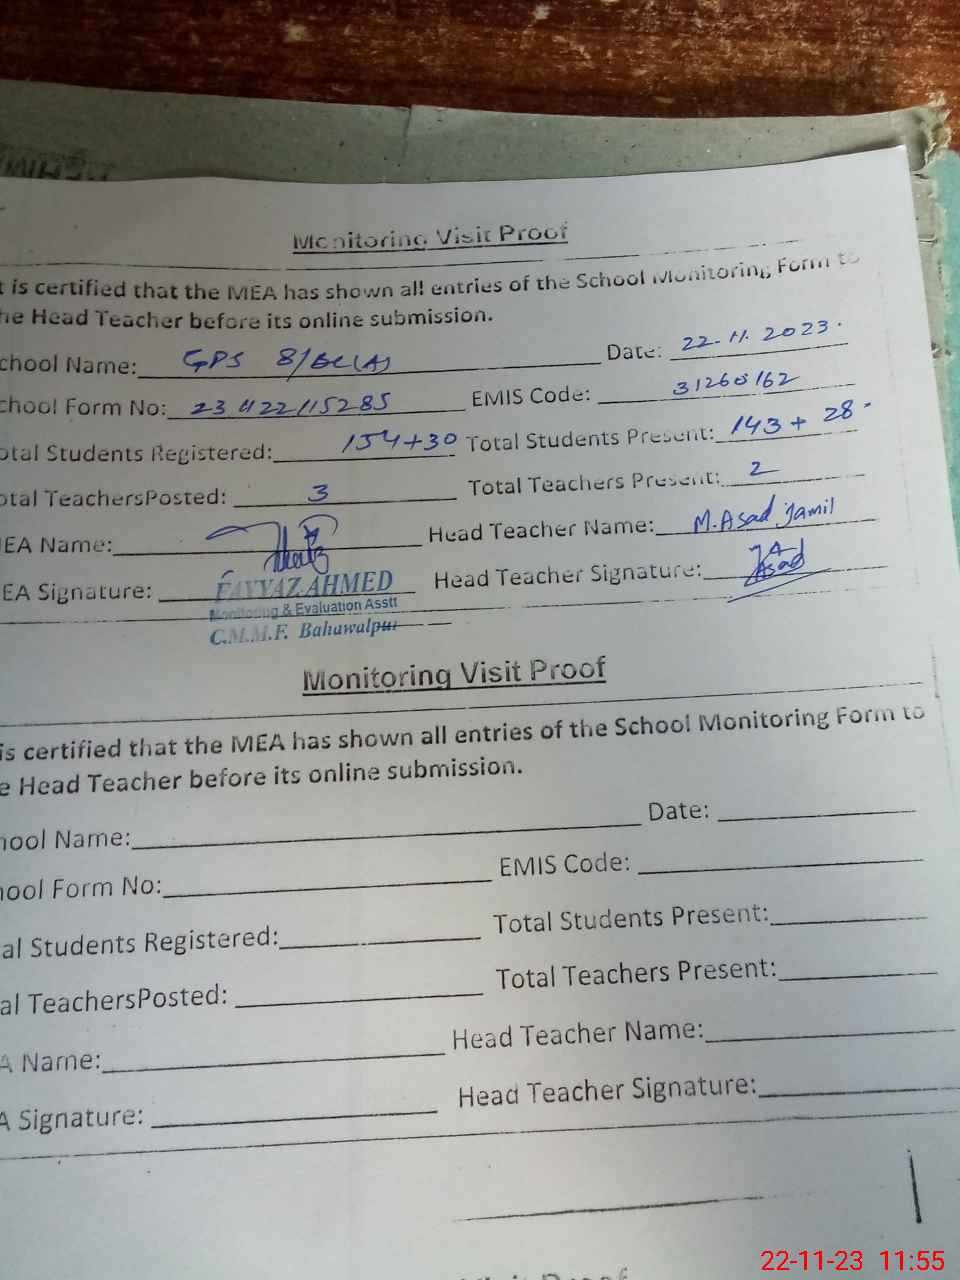 Monitoring Visit Proof
t is certified that the MEA has shown all entries of the School Monitoring Form to
he Head Teacher before its online submission.
chool Name: GPS 8/BC(A) Date: 22.11.2023.
chool Form No: 23 1122115285 EMIS Code: 31260162
otal Students Registered: 154+30 Total Students Present: 143 + 28.
otal TeachersPosted: 3 Total Teachers Present: 2
EA Name: Head Teacher Name: M.Asad Jamil
EA Signature: Head Teacher Signature: Asad
FAYYAZ AHMED
Monitoring & Evaluation Asstt
C.M.M.F. Bahawalpur
Monitoring Visit Proof
is certified that the MEA has shown all entries of the School Monitoring Form to
e Head Teacher before its online submission.
hool Name: Date:
hool Form No: EMIS Code:
al Students Registered: Total Students Present:
al TeachersPosted: Total Teachers Present:
A Name: Head Teacher Name:
A Signature: Head Teacher Signature:
22-11-23 11:55